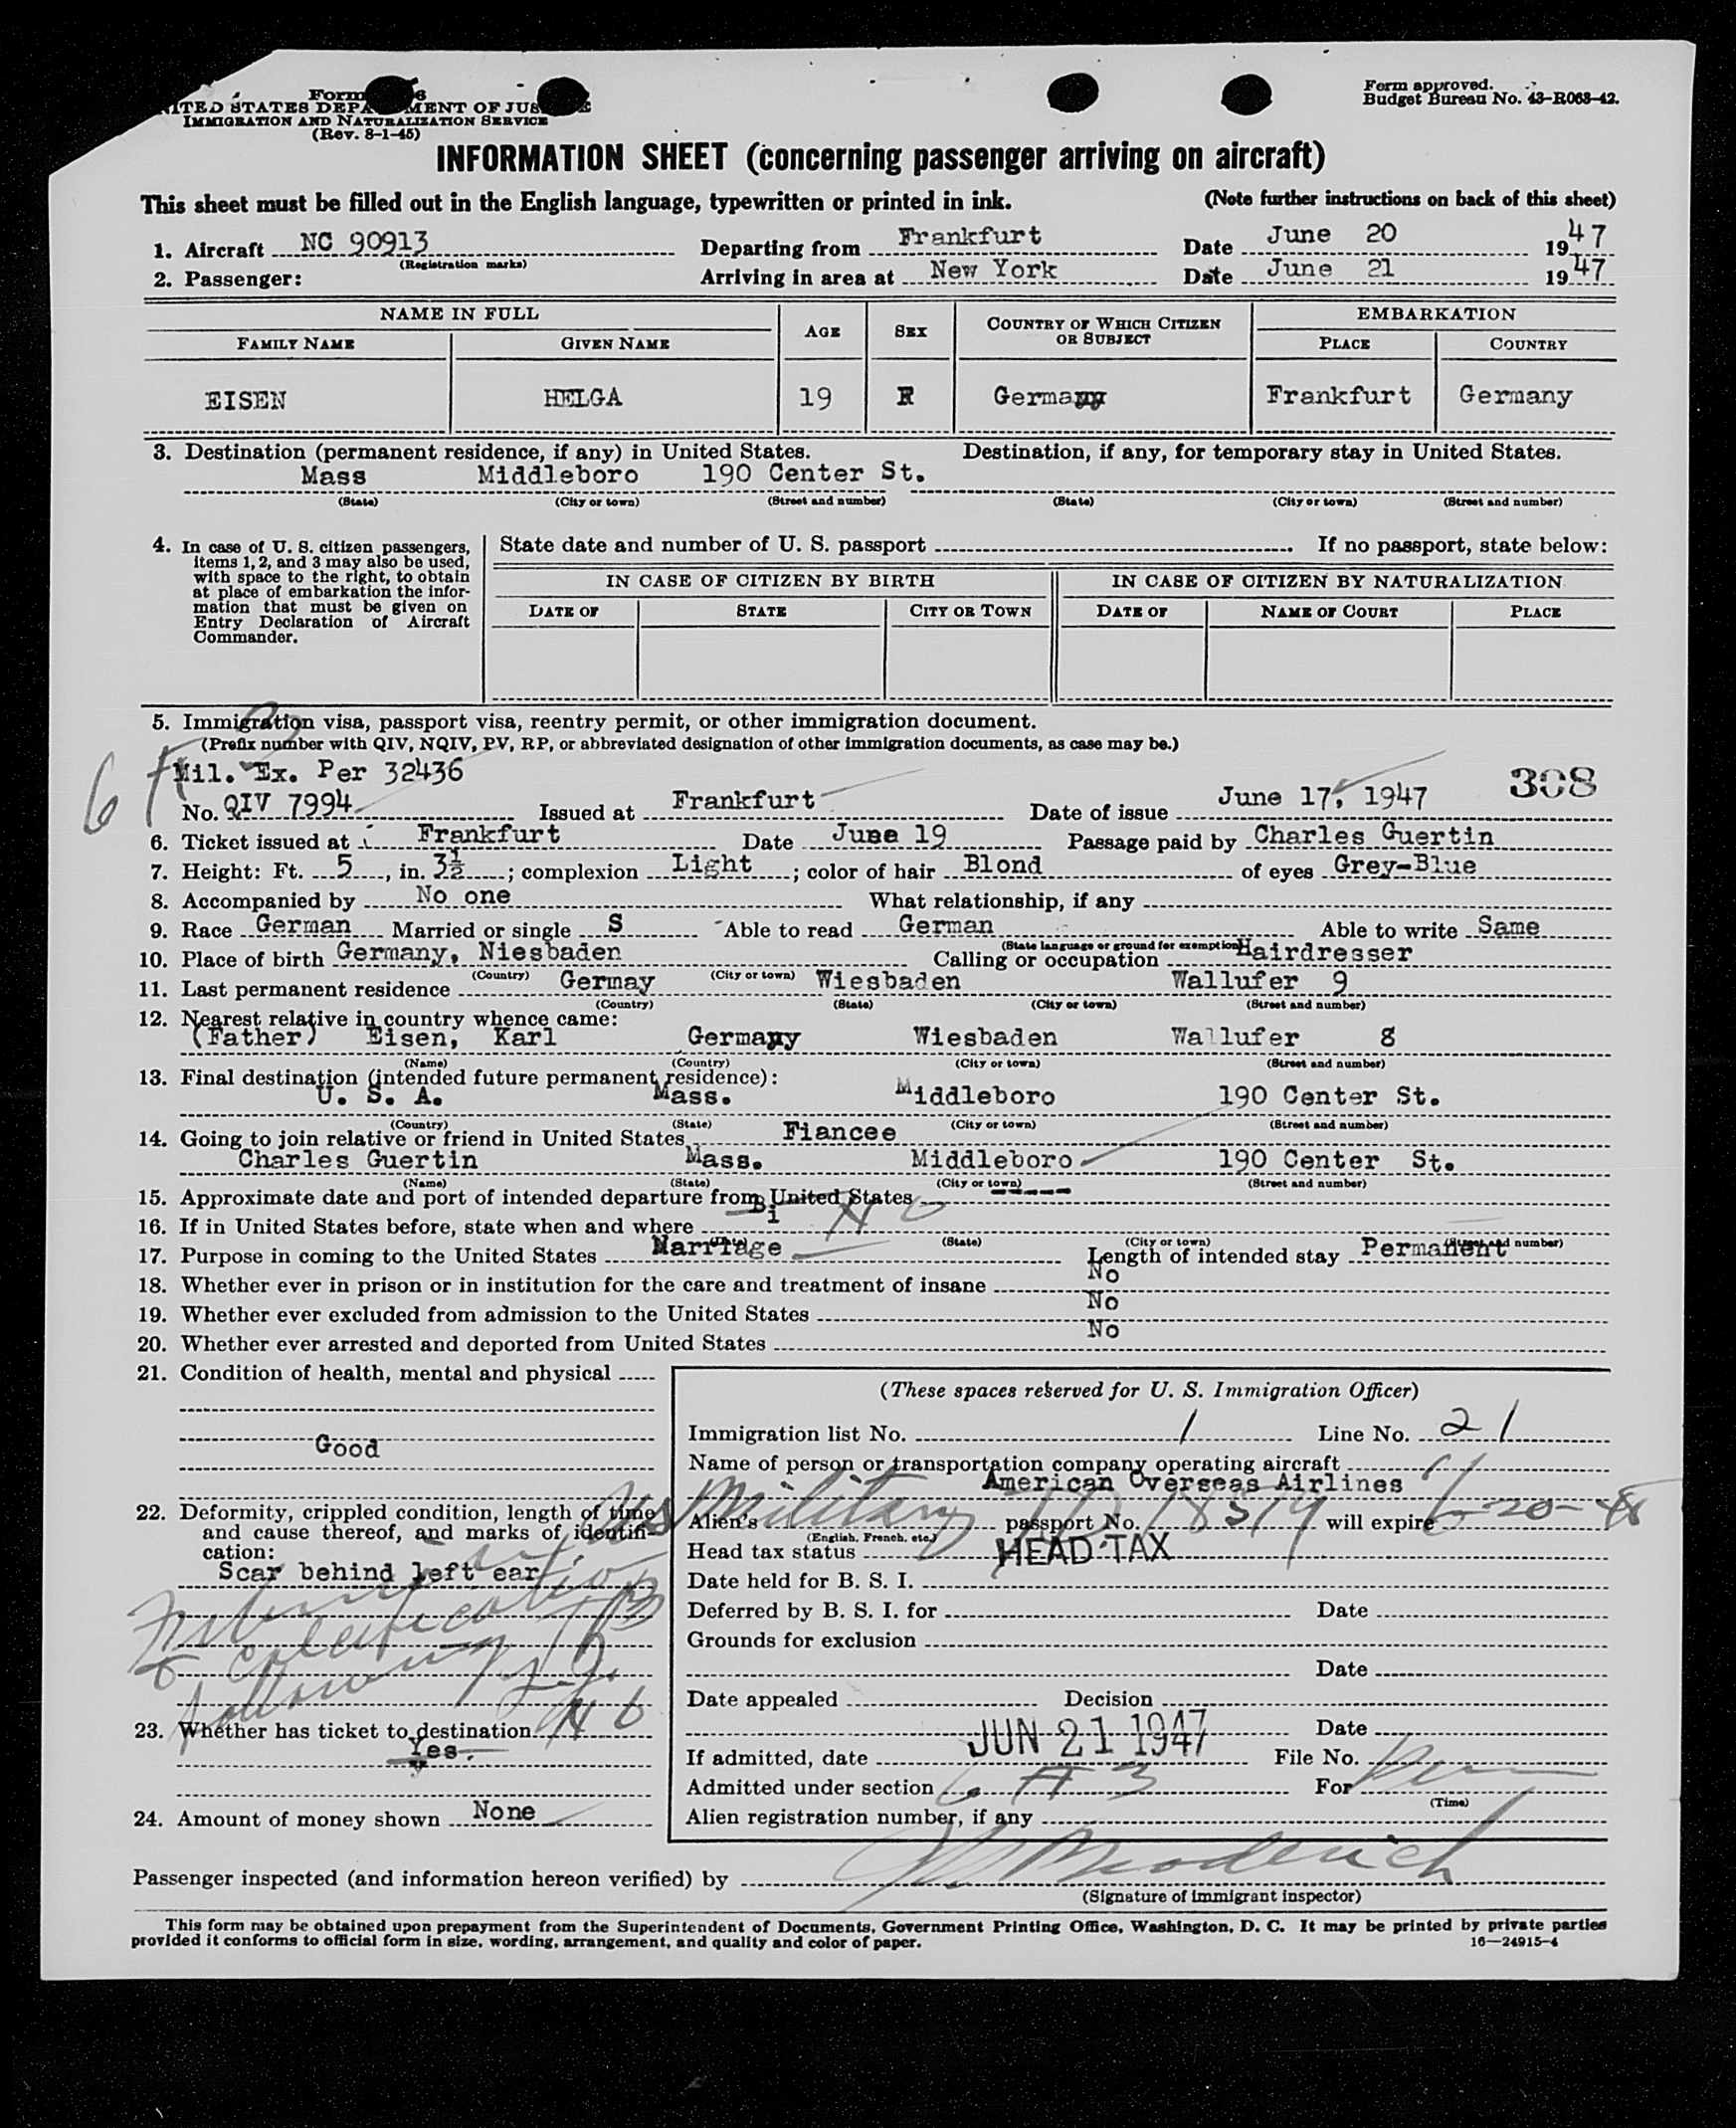 Form 6
UNITED STATES DEPARTMENT OF JUSTICE
IMMIGRATION AND NATURALIZATION SERVICE
(Rev. 8-1-45)
Form approved.
Budget Bureau No. 43-R063-42.
INFORMATION SHEET (concerning passenger arriving on aircraft)
This sheet must be filled out in the English language, typewritten or printed in ink. (Note further instructions on back of this sheet)
1. Aircraft NC 90913 Departing from Frankfurt Date June 20 1947
(Registration marks)
2. Passenger: Arriving in area at New York Date June 21 1947
NAME IN FULL AGE SEX COUNTRY OF WHICH CITIZEN OR SUBJECT EMBARKATION
FAMILY NAME GIVEN NAME PLACE COUNTRY
EISEN HELGA 19 F Germany Frankfurt Germany
3. Destination (permanent residence, if any) in United States. Destination, if any, for temporary stay in United States.
Mass Middleboro 190 Center St.
(State) (City or town) (Street and number) (State) (City or town) (Street and number)
4. In case of U. S. citizen passengers,
items 1, 2, and 3 may also be used,
with space to the right, to obtain
at place of embarkation the infor-
mation that must be given on
Entry Declaration of Aircraft
Commander.
State date and number of U. S. passport If no passport, state below:
IN CASE OF CITIZEN BY BIRTH IN CASE OF CITIZEN BY NATURALIZATION
DATE OF STATE CITY OR TOWN DATE OF NAME OF COURT PLACE
5. Immigration visa, passport visa, reentry permit, or other immigration document.
(Prefix number with QIV, NQIV, PV, RP, or abbreviated designation of other immigration documents, as case may be.)
Mil. Ex. Per 32436
308
No. QIV 7994 Issued at Frankfurt Date of issue June 17, 1947
6. Ticket issued at Frankfurt Date June 19 Passage paid by Charles Guertin
7. Height: Ft. 5, in. 3½; complexion Light; color of hair Blond of eyes Grey-Blue
8. Accompanied by No one What relationship, if any
9. Race German Married or single S Able to read German Able to write Same
(State language or ground for exemption)
10. Place of birth Germany, Niesbaden Calling or occupation Hairdresser
(Country) (City or town)
11. Last permanent residence Germay Wiesbaden Wallufer 9
(Country) (State) (City or town) (Street and number)
12. Nearest relative in country whence came:
(Father) Eisen, Karl Germany Wiesbaden Wallufer 8
(Name) (Country) (City or town) (Street and number)
13. Final destination (intended future permanent residence):
U. S. A. Mass. Middleboro 190 Center St.
(Country) (State) (City or town) (Street and number)
14. Going to join relative or friend in United States Fiancee
Charles Guertin Mass. Middleboro 190 Center St.
(Name) (State) (City or town) (Street and number)
15. Approximate date and port of intended departure from United States -----
16. If in United States before, state when and where No
(State) (City or town) (Street and number)
17. Purpose in coming to the United States Marriage Length of intended stay Permanent
18. Whether ever in prison or in institution for the care and treatment of insane No
19. Whether ever excluded from admission to the United States No
20. Whether ever arrested and deported from United States No
21. Condition of health, mental and physical
Good
22. Deformity, crippled condition, length of time
and cause thereof, and marks of identifi-
cation:
Scar behind left ear
23. Whether has ticket to destination
Yes.
24. Amount of money shown None
(These spaces reserved for U. S. Immigration Officer)
Immigration list No. 1 Line No. 21
Name of person or transportation company operating aircraft
American Overseas Airlines
Alien's US Military passport No. 18319 will expire 6-20-48
(English, French, etc.)
Head tax status HEAD TAX
Date held for B. S. I.
Deferred by B. S. I. for Date
Grounds for exclusion
Date
Date appealed Decision
Date
If admitted, date JUN 21 1947 File No.
Admitted under section 6 A 3 For
(Time)
Alien registration number, if any
Passenger inspected (and information hereon verified) by
(Signature of immigrant inspector)
This form may be obtained upon prepayment from the Superintendent of Documents, Government Printing Office, Washington, D. C. It may be printed by private parties
provided it conforms to official form in size, wording, arrangement, and quality and color of paper.
16—24915-4